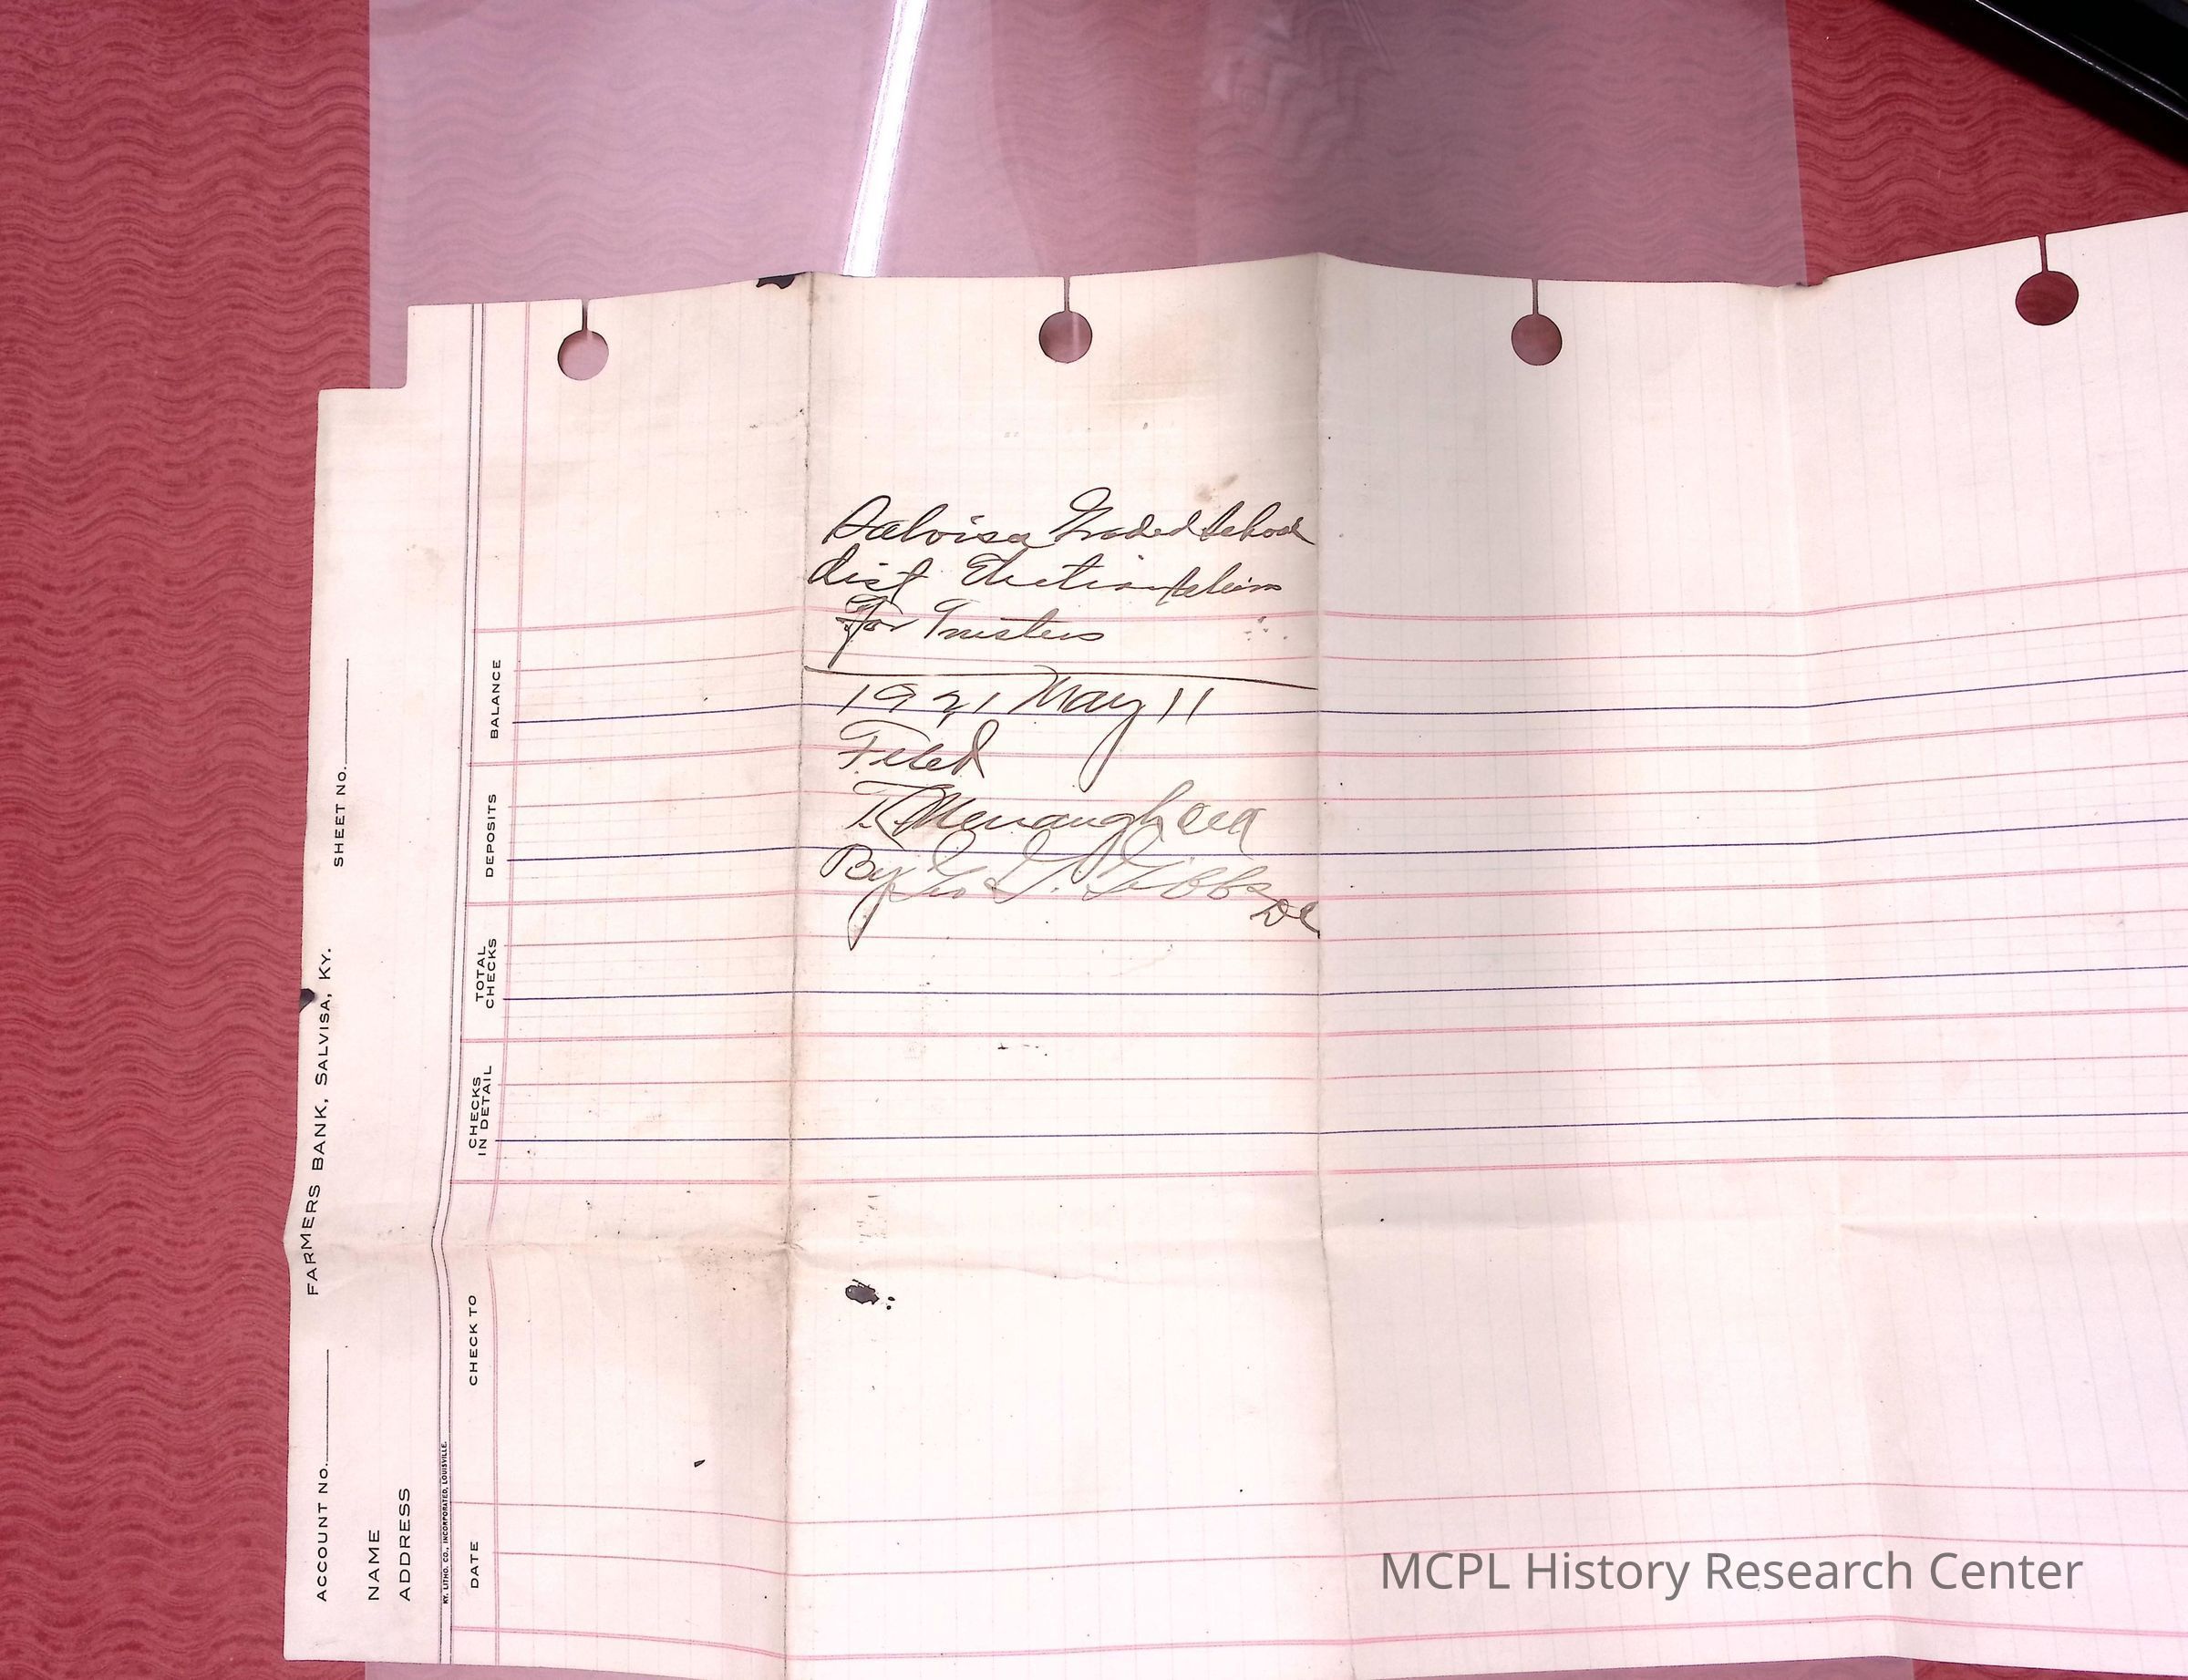 Salvisa Graded School
dist Election
For Trustees
1921 May 11
Filed
T. Menaugh CCC
By Geo I. Gibbs
DC
FARMERS BANK, SALVISA, KY.
SHEET NO.
ACCOUNT NO.
NAME
ADDRESS
KY. LITHO. CO., INCORPORATED, LOUISVILLE.
BALANCE
DEPOSITS
TOTAL
CHECKS
CHECKS
IN DETAIL
CHECK TO
DATE
MCPL History Research Center